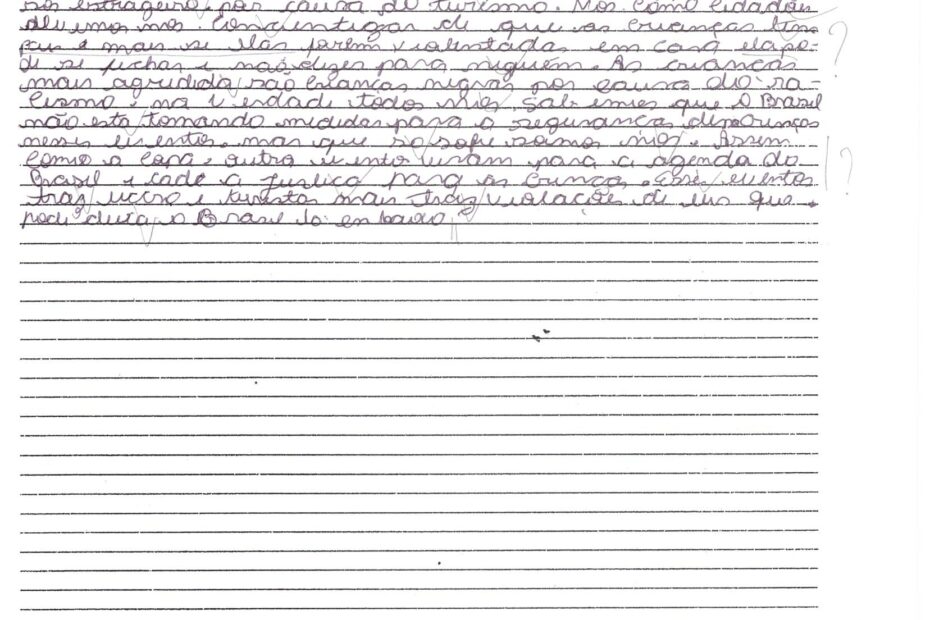 sos estrageiro, por causa do turismo. Nos como cidadões
devemos nos concientizar de que as crianças tem
pais e mais se elas forem violentadas em casa elapo-
de se fechar e não dizer para niguém. As crianças
mais agredida são crianças negras por causa do ra-
cismo, na verdade todos nós sabemos que o Brasil
não está tomando medidas para a segurança
nesses eventos, mas que so sofre somos nós. Assem
como a copa, outro evento viram para a agenda do
Brasil e cadê a justica para as Esses eventos
traz lucro e turistas mais traz violações de
pode deixa o Brasil la en baixo
? ?